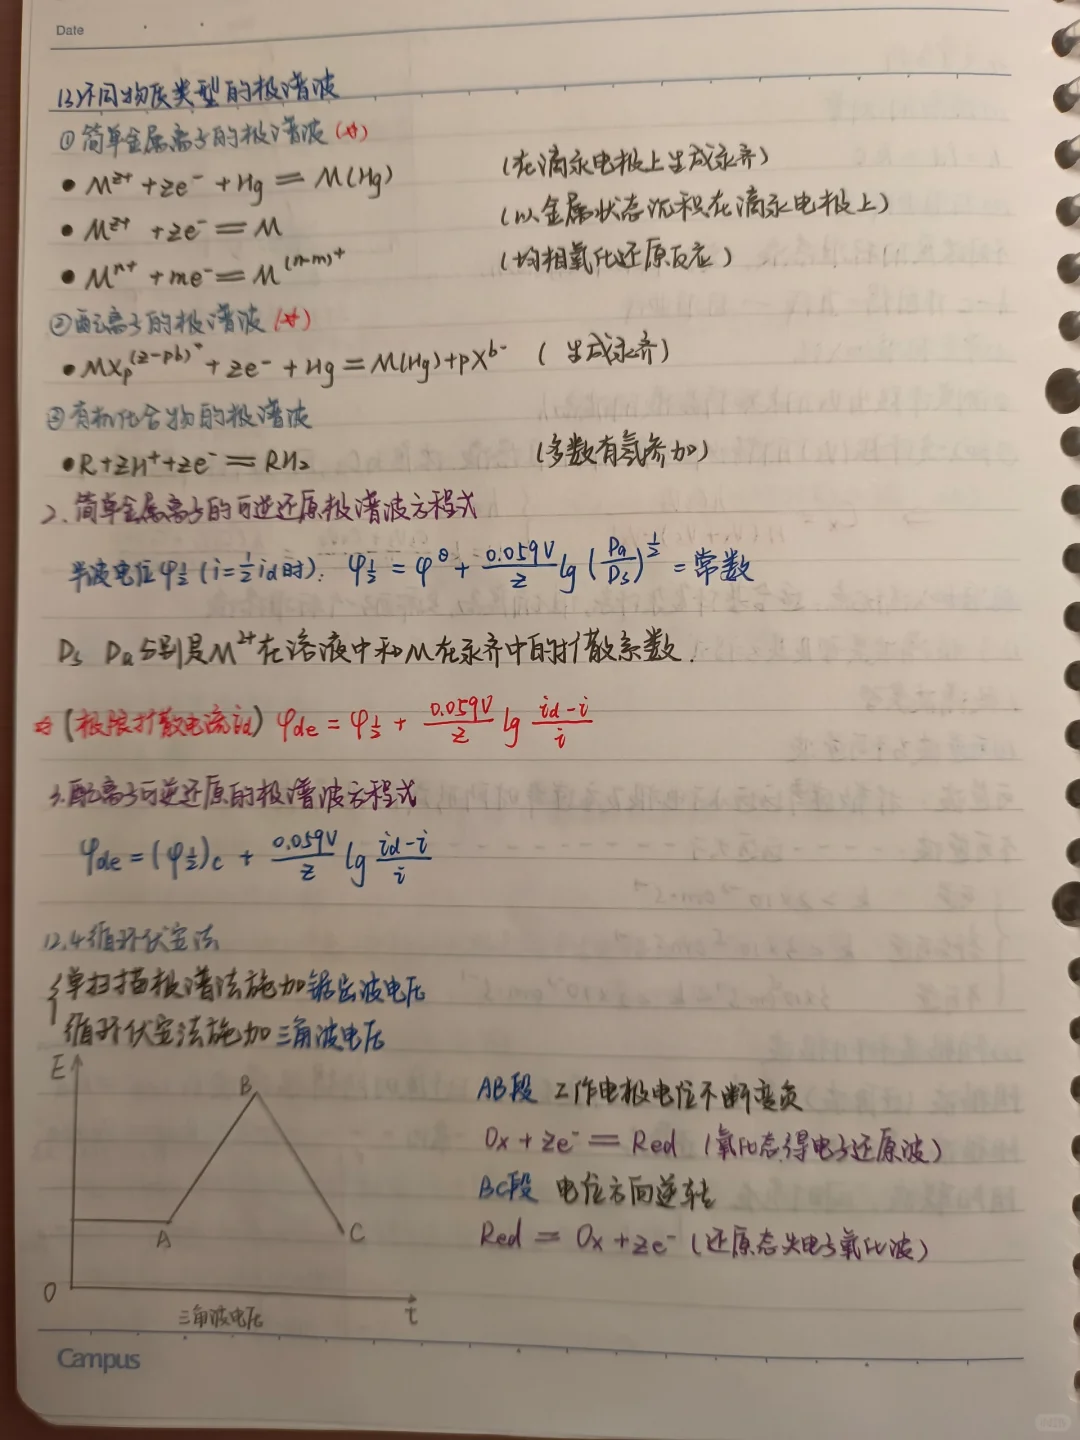 Date
(3)不同物质类型的极谱波
①简单金属离子的极谱波(☆)
• Mᶻ⁺ + ze⁻ + Hg = M(Hg) (在滴汞电极上生成汞齐)
• Mᶻ⁺ + ze⁻ = M (以金属状态沉积在滴汞电极上)
• Mⁿ⁺ + me⁻ = M⁽ⁿ⁻ᵐ⁾⁺ (均相氧化还原反应)
②配离子的极谱波(☆)
• MXₚ^(z-pb)+ + ze⁻ + Hg = M(Hg) + pXᵇ⁻ (生成汞齐)
③有机化合物的极谱波
• R + zH⁺ + ze⁻ = RH₂ (多数有氢参加)
2. 简单金属离子的可逆还原极谱波方程式
半波电位φ½ (i=½id时): φ½ = φ^θ + 0.059V/z lg (Da/Ds)^½ = 常数
Ds Da分别是M²⁺在溶液中和M在汞齐中的扩散系数.
☆(极限扩散电流id) φde = φ½ + 0.059V/z lg (id-i)/i
3.配离子可逆还原的极谱波方程式
φde = (φ½)c + 0.059V/z lg (id-i)/i
12.4循环伏安法
{单扫描极谱法施加锯齿波电压
循环伏安法施加三角波电压
E
B
AB段 工作电极电位不断变负
Ox + ze⁻ = Red (氧化态得电子还原波)
BC段 电位方向逆转
A
C
Red = Ox + ze⁻ (还原态失电子氧化波)
0
t
三角波电压
Campus